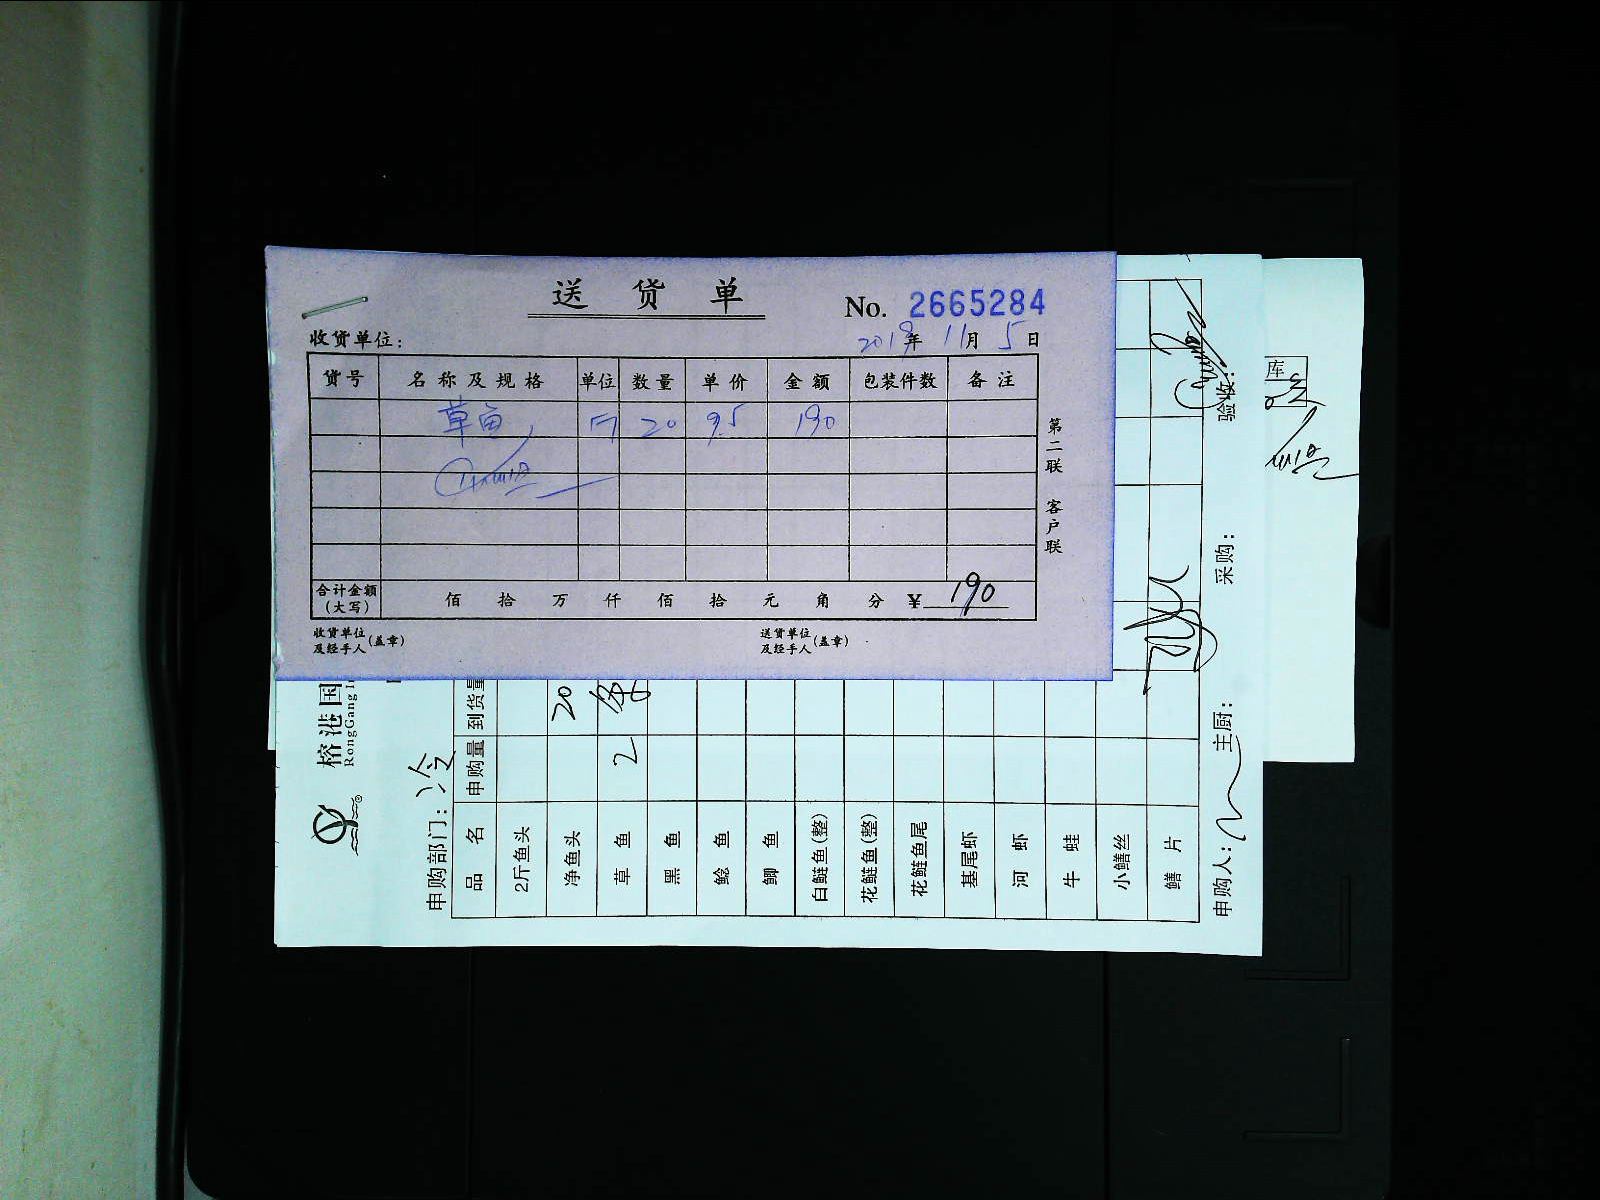 送货单
No. 2665284
收货单位：
2018年 11月 5日
货号 名称及规格 单位 数量 单价 金额 包装件数 备注
草鱼 斤 20 9.5 190
合计金额（大写） 佰 拾 万 仟 佰 拾 元 角 分 ¥ 190
收货单位及经手人（盖章） 送货单位及经手人（盖章）
第二联 客户联
榕港国
RongGang I
申购部门：冷
品名 申购量 到货量
2斤鱼头
净鱼头 20
草鱼 2 条
黑鱼
鲶鱼
鲫鱼
白鲢鱼(整)
花鲢鱼(整)
花鲢鱼尾
基尾虾
河虾
牛蛙
小鳝丝
鳝片
申购人： 主厨： 采购： 验收：
库